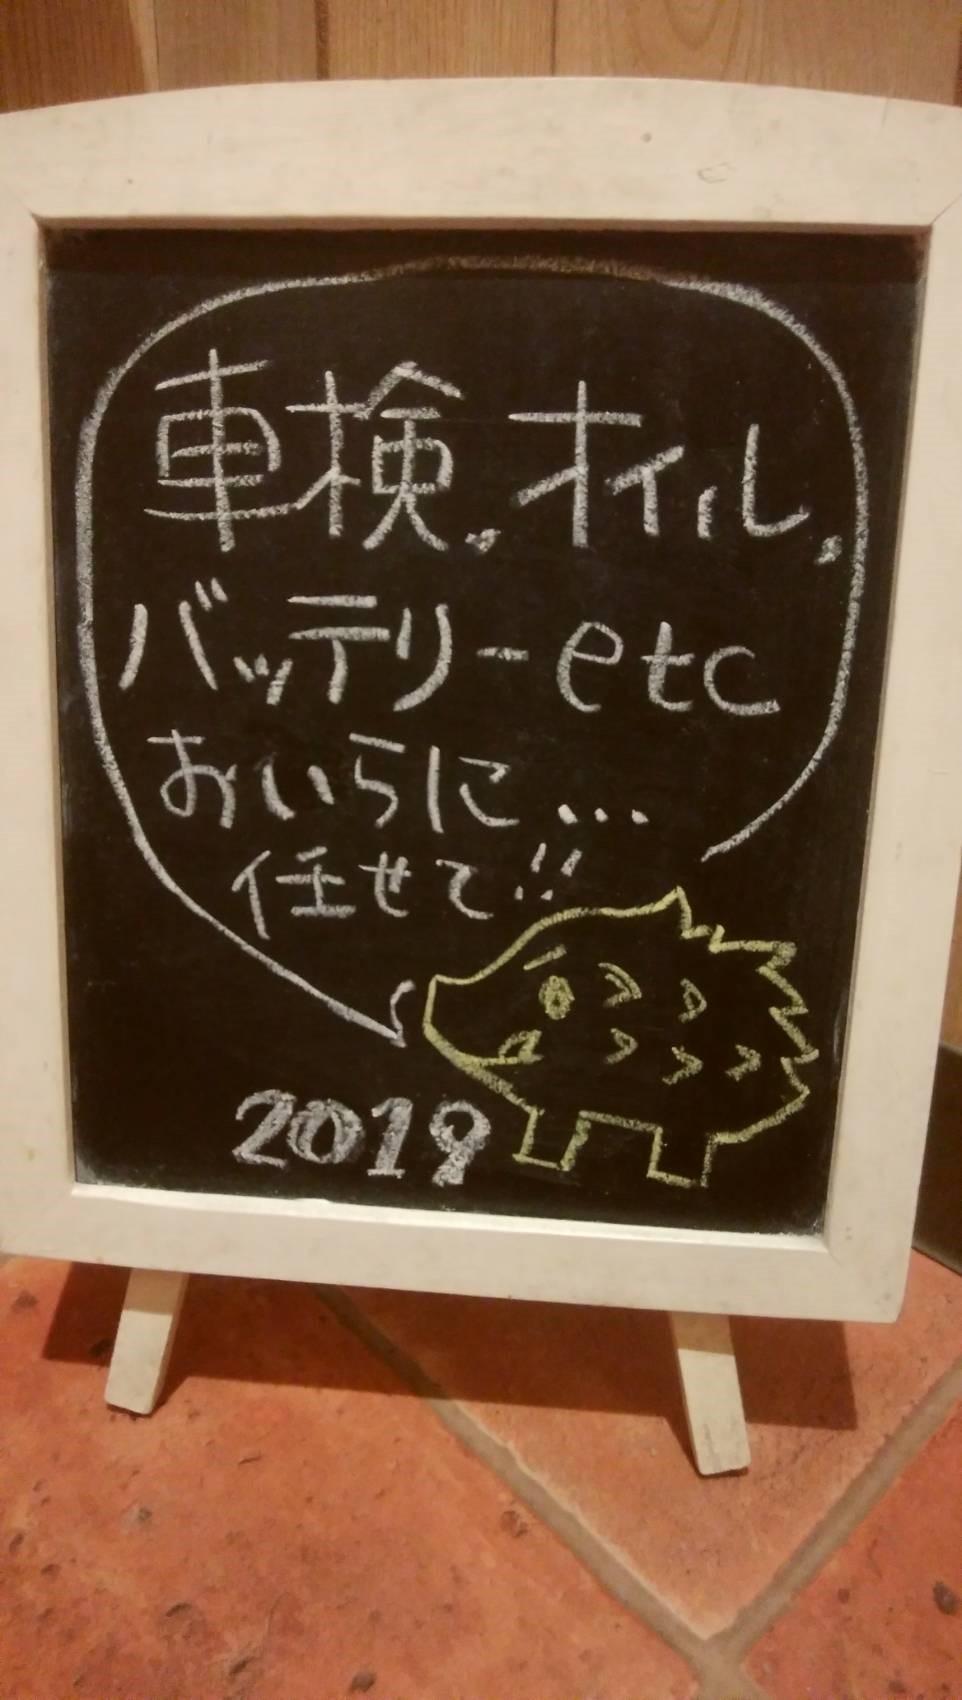 車検、オイル、
バッテリーetc
おいらに...
任せて!!
2019